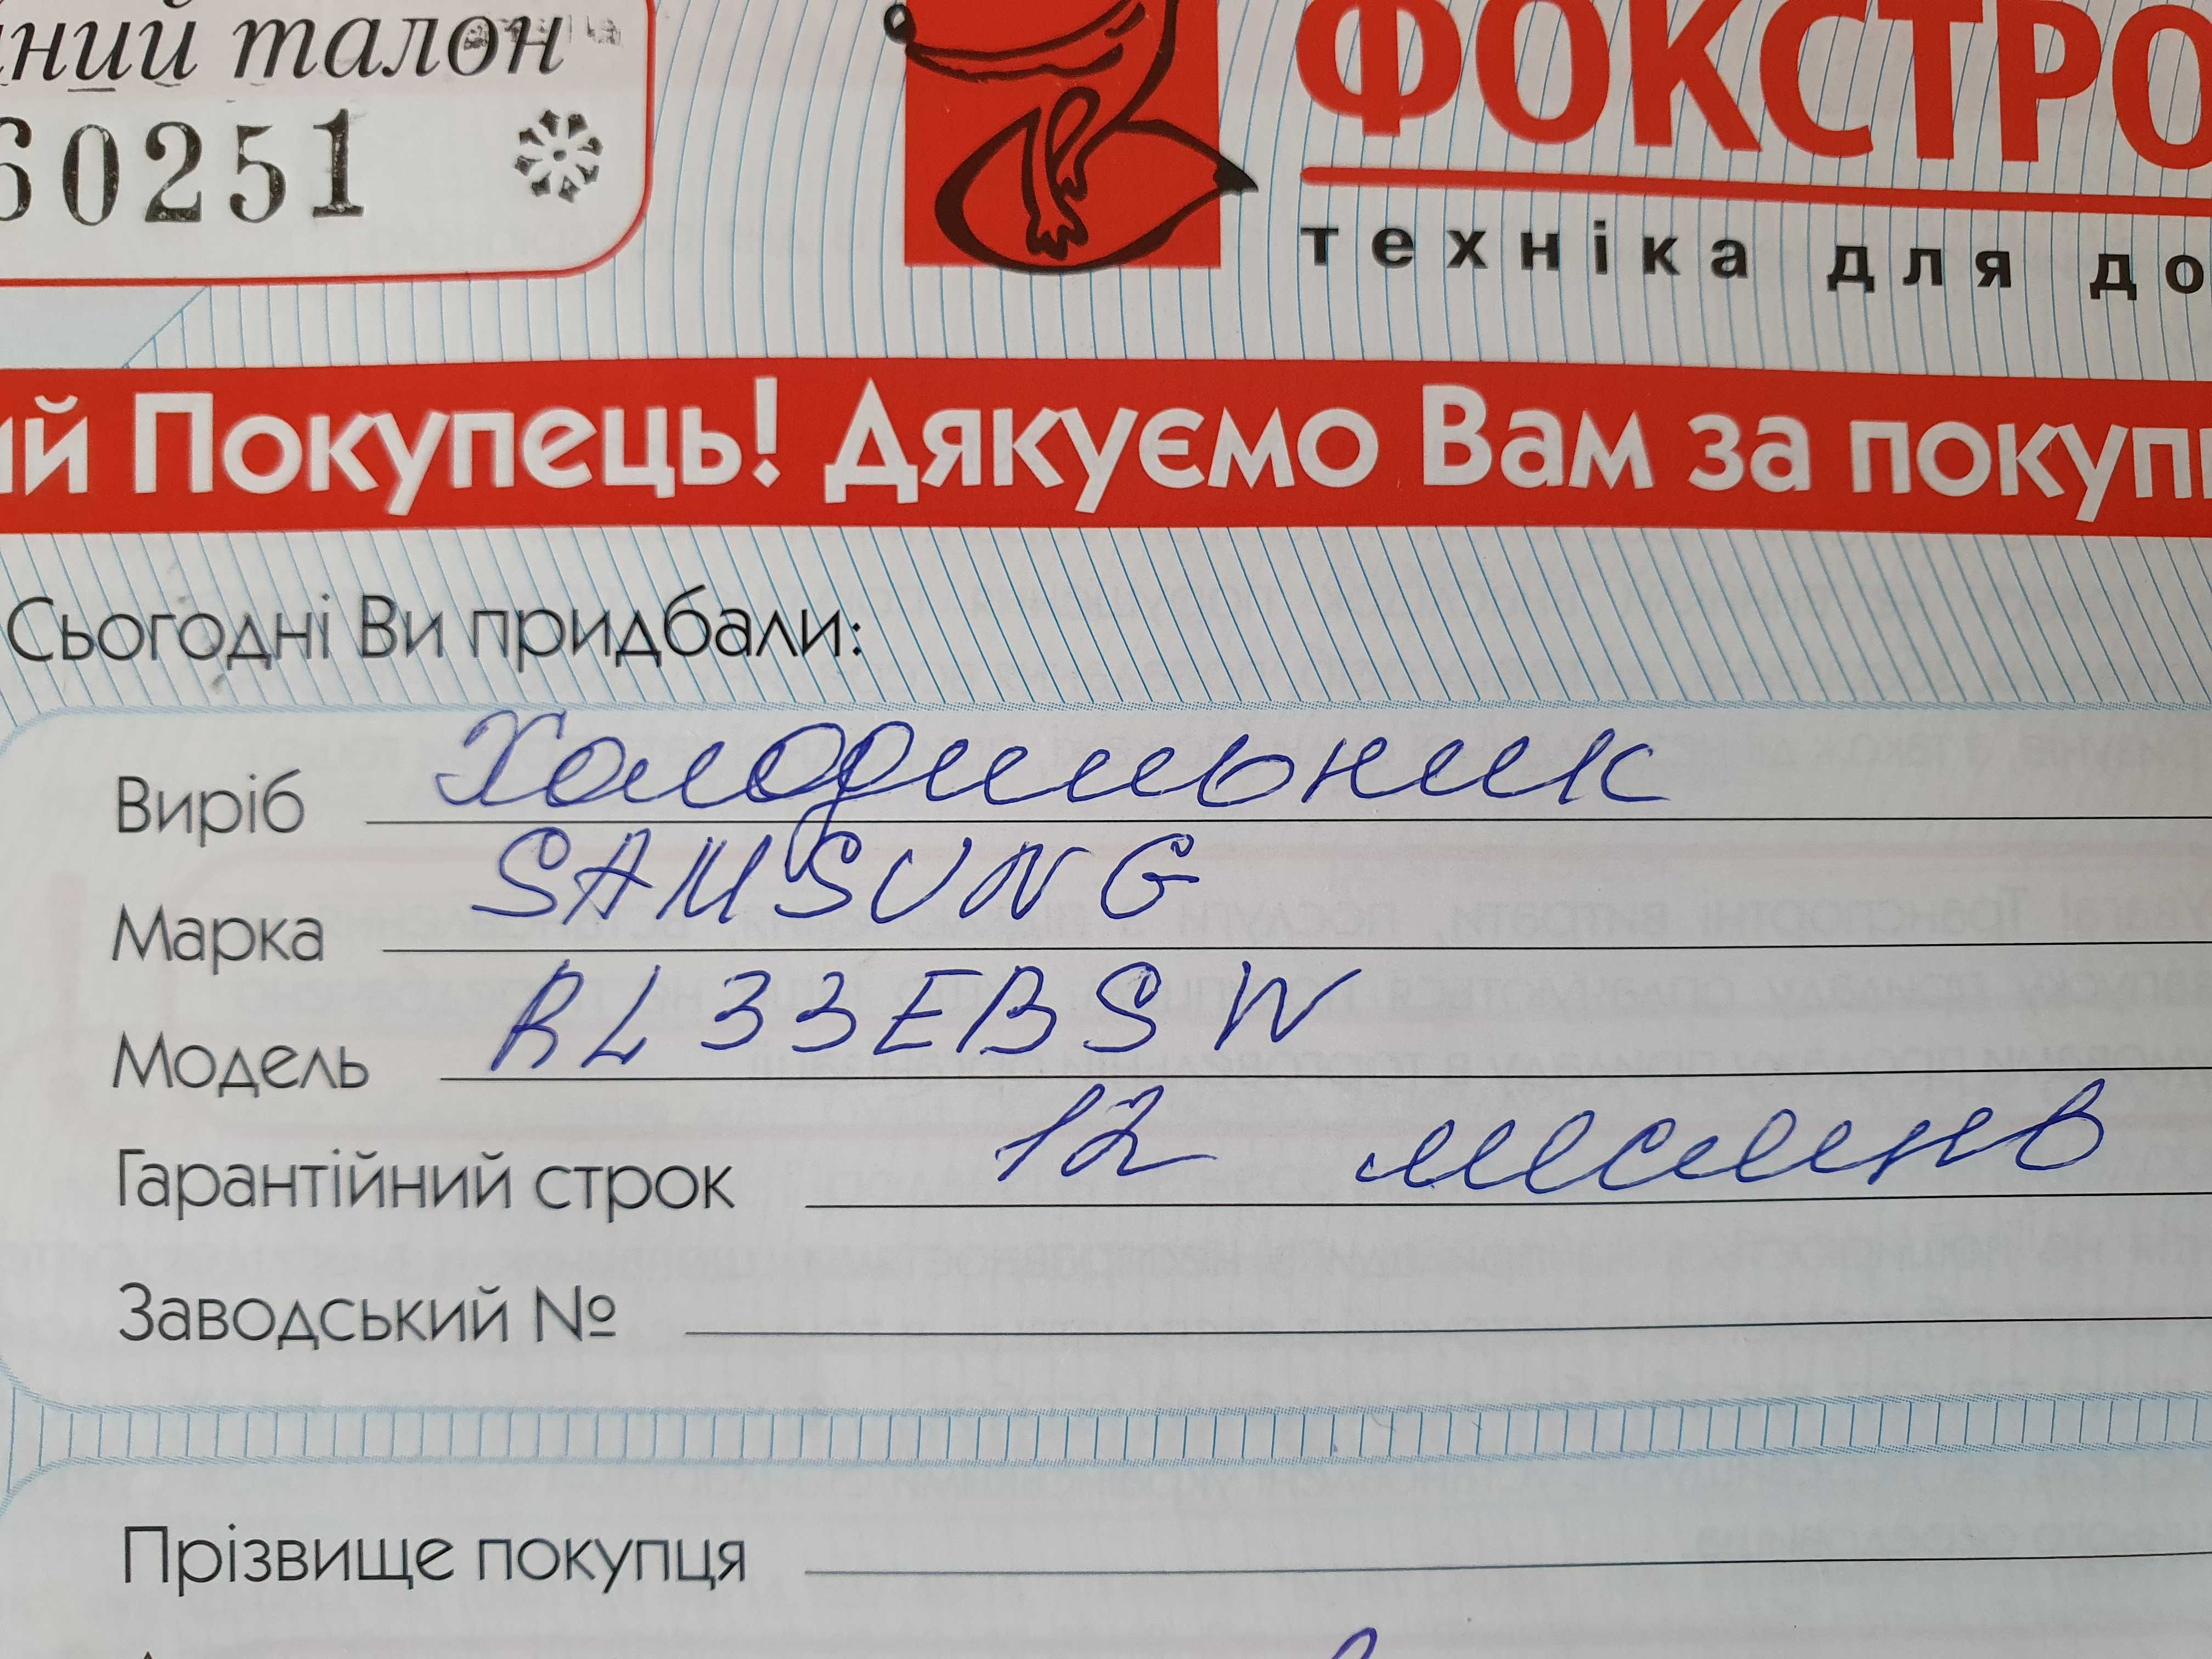 ний талон
60251
ФОКСТРО
техніка для до
ий Покупець! Дякуємо Вам за покуп
Сьогодні Ви придбали:
Виріб Холодильник
Марка SAMSUNG
Модель RL33EBSW
Гарантійний строк 12 місяців
Заводський №
Прізвище покупця